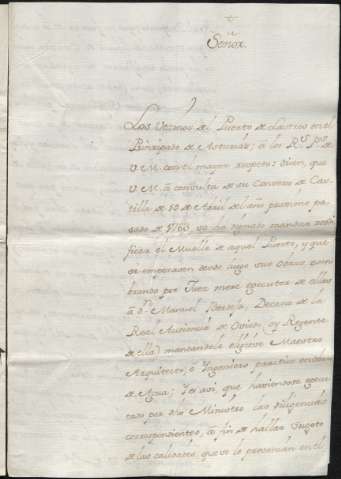 Señor.
Los Vezinos del Puerto de Luarca en el
Principado de Asturias; a los R.s P.s de
V.M. con el mayor respeto: dizen, que
V.M. a consulta de su Consejo de Cas-
tilla de 10 de Abril del año proximo pa-
sado de 1760, se ha dignado mandar
ficar el Muelle de aquel Puerto, y que
se empezasen desde luego sus obras nom-
brando por Juez mero executor de ellas
a D.n Manuel Decano de la
Real Audiencia de Oviedo, (oy Regente
de ella) mandandole eligiese Maestro
Arquitecto, o Ingeniero practico en obras
de Agua; Y es asi que haviendose egecu-
tado por dho Ministro las diligencias
correspondientes, a fin de hallar Sugeto
de las calidades que se le prevenian en el